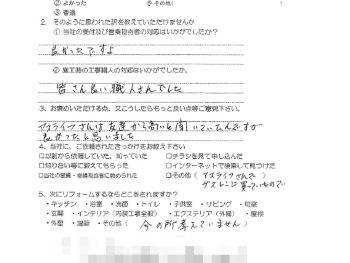 ② よかった ⑤ その他( )
③ 普通
2．そのように思われた訳を教えていただけませんか
① 当社の受付及び営業担当者の対応はいかがでしたか？
良かったですよ
② 施工時の工事職人の対応はいかがでしたか。
皆さん良い職人さんでした
3．お褒めいただける点、又こうしたらもっと良い点等ご意見下さい。
アスライフさんは友達から高いと聞いていたんですが
良かったと思いました
4．当社に、ご依頼されたきっかけをお教え下さい
□以前から依頼していた、知っていた □チラシを見て申し込んだ
□知り合い等に教えてもらった □インターネットで検索して見つけた
□当社の営業・者に勧められた □その他（アスライフさんで
ガスレンジ買っていたので
5．次にリフォームするならどこをされますか？
・キッチン ・浴室 ・洗面 ・トイレ ・子供室 ・リビング ・和室
・玄関 ・インテリア（内装工事全般） ・エクステリア（外構） ・屋根
・外壁 ・増築 ・その他（ 今の所考えていません ）